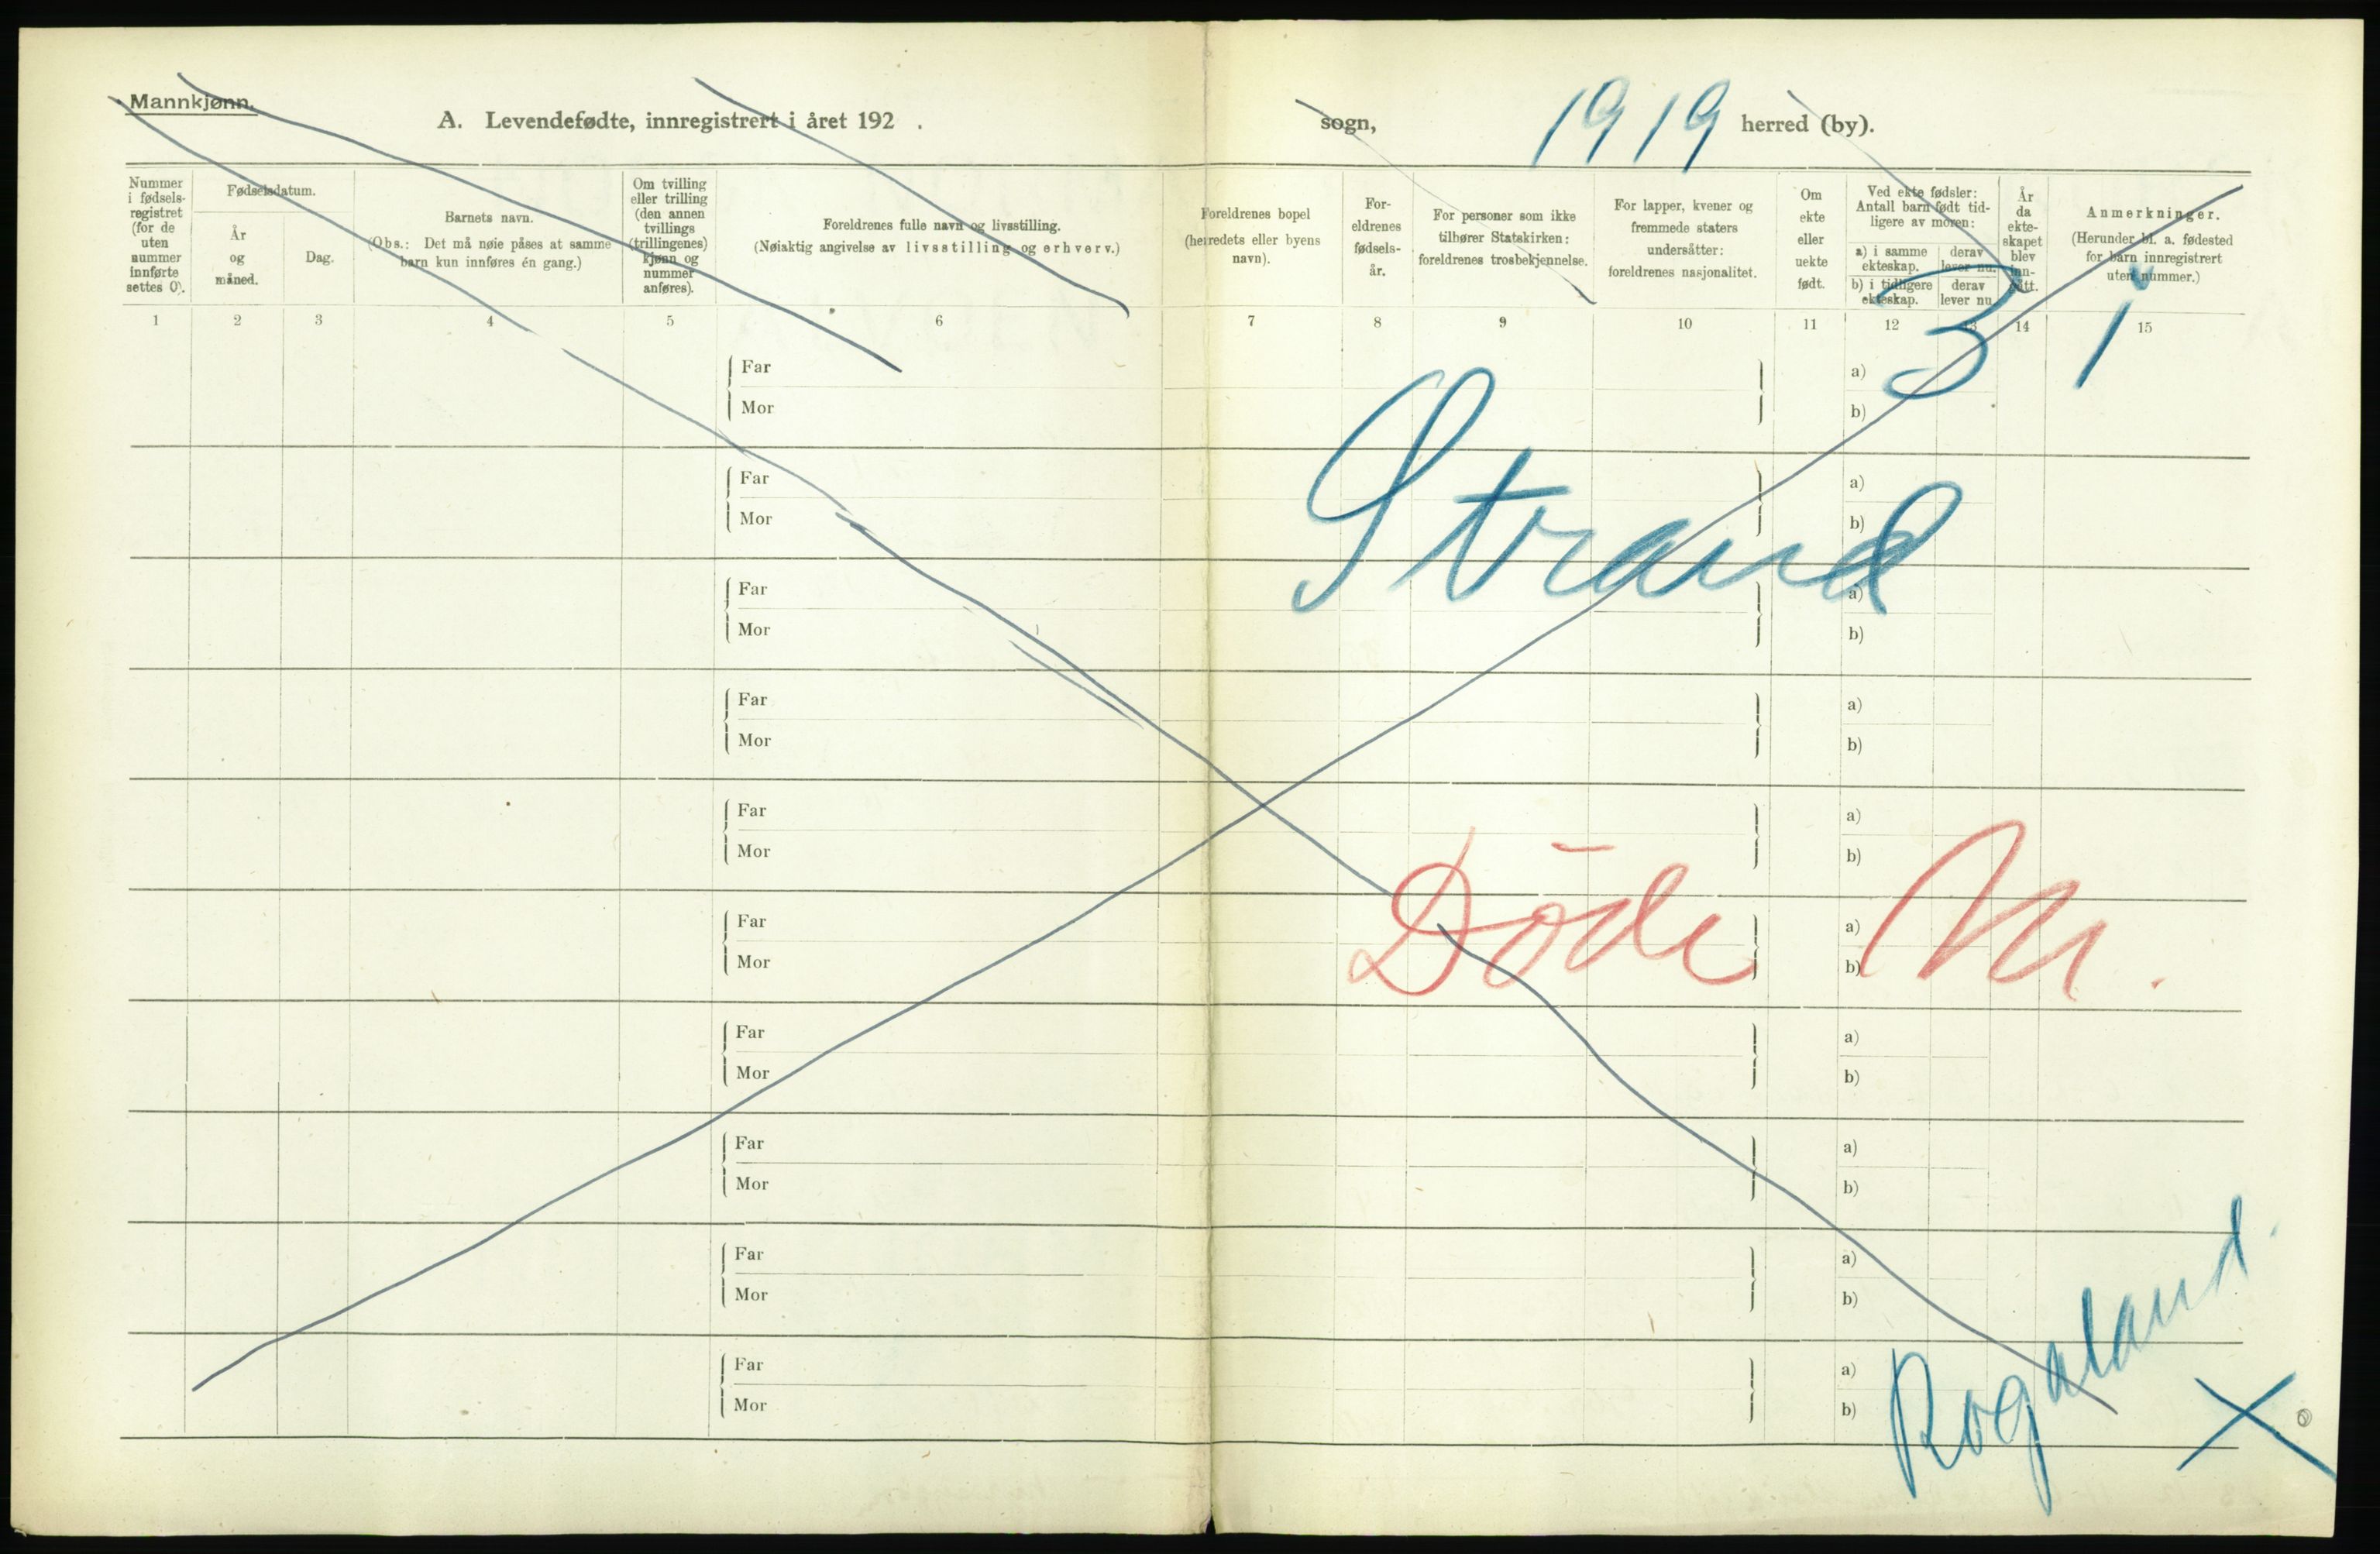 Mannkjønn.
A. Levendefødte, innregistrert i året 192 . sogn, 1919 herred (by).
Nummer i fødsels- registret (for de uten nummer innførte settes 0).
Fødselsdatum.
År og måned.
Dag.
Barnets navn.
(Obs.: Det må nøie påses at samme barn kun innføres én gang.)
Om tvilling eller trilling (den annen tvillings (trillingenes) kjønn og nummer anføres).
Foreldrenes fulle navn og livsstilling.
(Nøiaktig angivelse av livsstilling og erhverv.)
Foreldrenes bopel (herredets eller byens navn).
For- eldrenes fødsels- år.
For personer som ikke tilhører Statskirken: foreldrenes trosbekjennelse.
For lapper, kvener og fremmede staters undersåtter: foreldrenes nasjonalitet.
Om ekte eller uekte født.
Ved ekte fødsler: Antall barn født tid- ligere av moren:
a) i samme ekteskap.
derav lever nu.
b) i tidligere ekteskap.
derav lever nu
År da ekte- skapet blev inn- gått.
Anmerkninger.
(Herunder bl. a. fødested for barn innregistrert uten nummer.)
1 2 3 4 5 6 7 8 9 10 11 12 13 14 15
31
Far a)
Mor b)
Strand
Far a)
Mor b)
Far a)
Mor b)
Far a)
Mor b)
Far a)
Mor b)
Döde M.
Far a)
Mor b)
Far a)
Mor b)
Far a)
Mor b)
Far a)
Mor b)
Far a)
Mor b)
Rogaland.
X